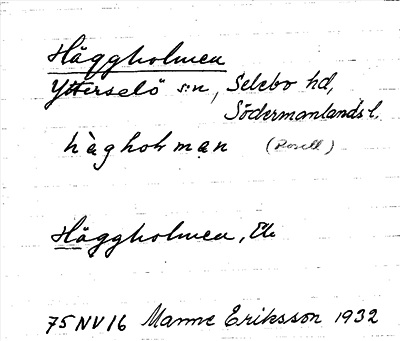 Häggholmen
Ytterselö s:n, Selebo hd,
Södermanlands l.
hàgholman (Rosell)
Häggholmen, Ö
75NV16 Manne Eriksson 1932